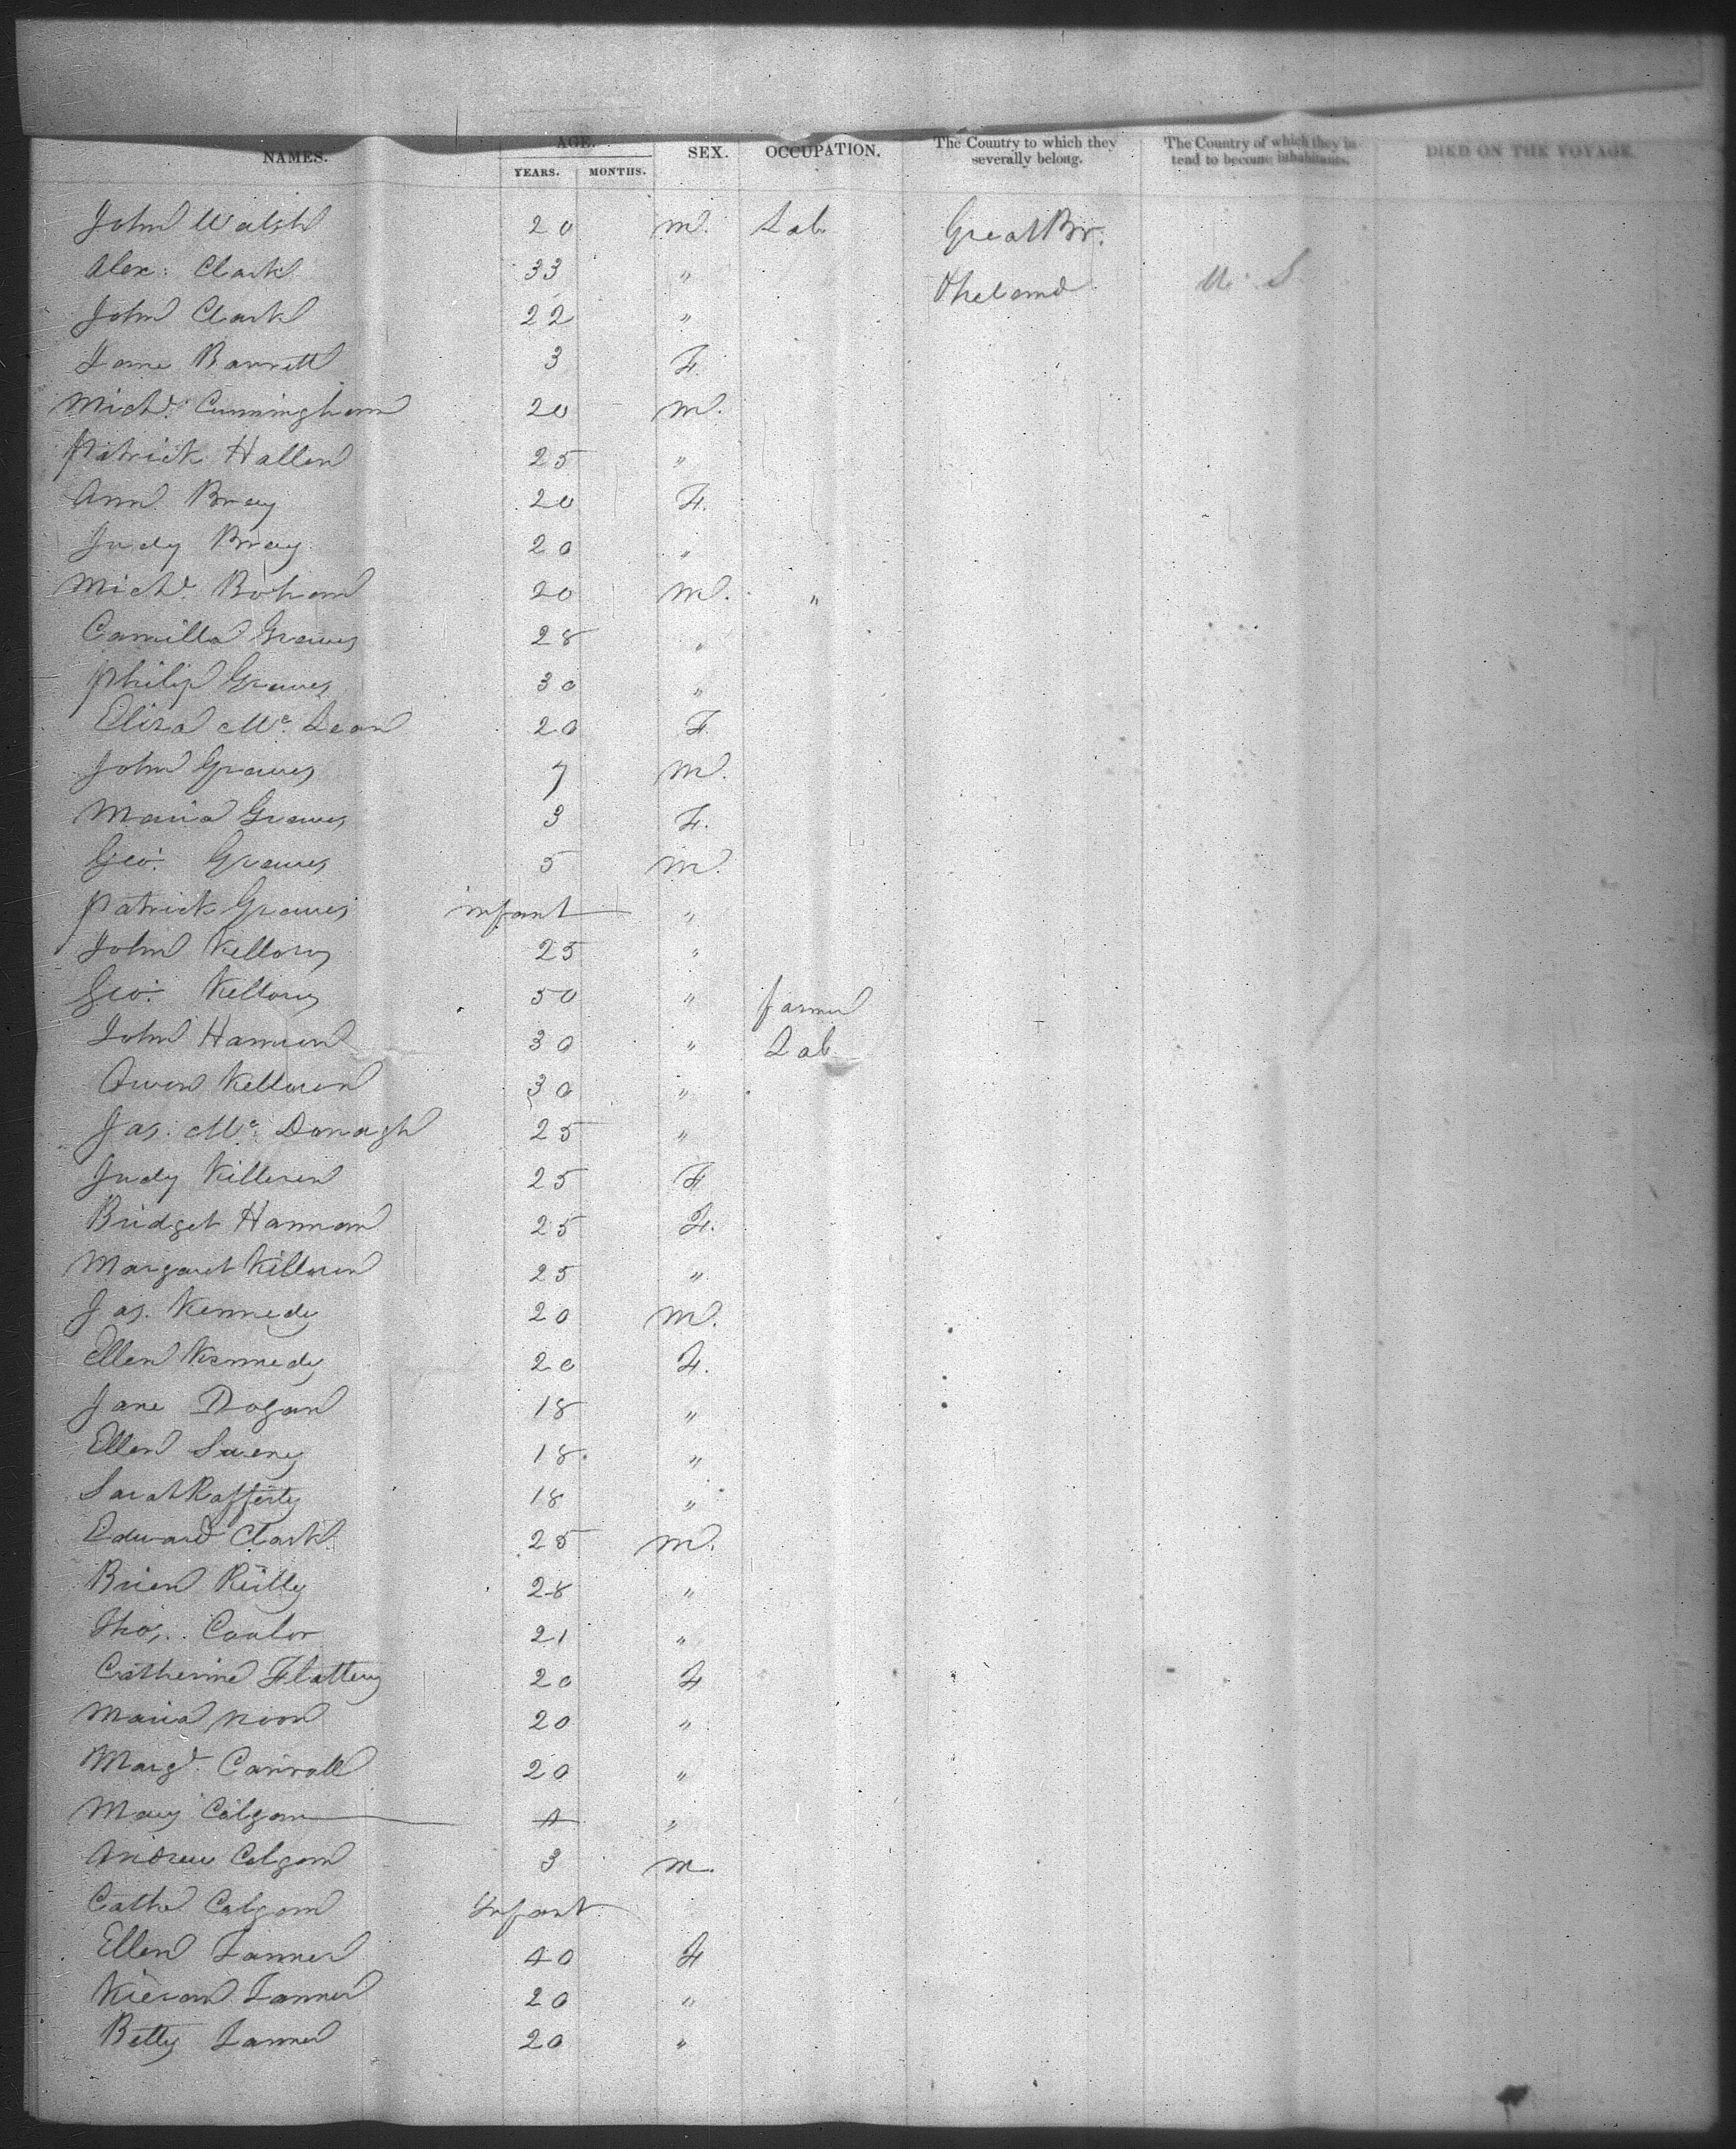 NAMES. AGE. YEARS. MONTHS. SEX. OCCUPATION. The Country to which they severally belong. The Country of which they intend to become inhabitants. DIED ON THE VOYAGE.
John Walsh 20 M. Lab Great Br.
Alex: Clark 33 " & Ireland U. S.
John Clark 22 "
Jane Barrett 3 F.
Michl. Cunningham 20 M.
Patrick Hallen 25 "
Ann Bray 20 F.
Judy Bray 20 "
Michl. Bohan 20 M. "
Camilla Graves 28 "
Philip Graves 30 "
Eliza Mc. Lean 20 F
John Graves 7 M.
Maria Graves 3 F.
Geo: Graves 5 M.
Patrick Graves infant "
John 25 "
Geo: 50 " farmer
John 30 " Lab
Owen Killoren 30 "
Jas. Mc. Donagh 25 "
Judy Killeren 25 F
Bridget Hannan 25 F.
Margaret Killoren 25 "
Jas. Kennedy 20 M.
Ellen Kennedy 20 F.
Jane Dogan 18 "
Ellen Sweny 18 "
Sarah Rafferty 18 "
Edward Clark 25 M.
Brien Reilly 28 "
Thos. 21 "
Catherine Flattery 20 F
Maria Noon 20 "
Margt. Carroll 20 "
Mary Colgan 4 "
Andrew Colgan 3 M.
Cathe Colgan Infant
Ellen Lannen 40 F
Kieran Lannen 20 "
Betty Lannen 20 "